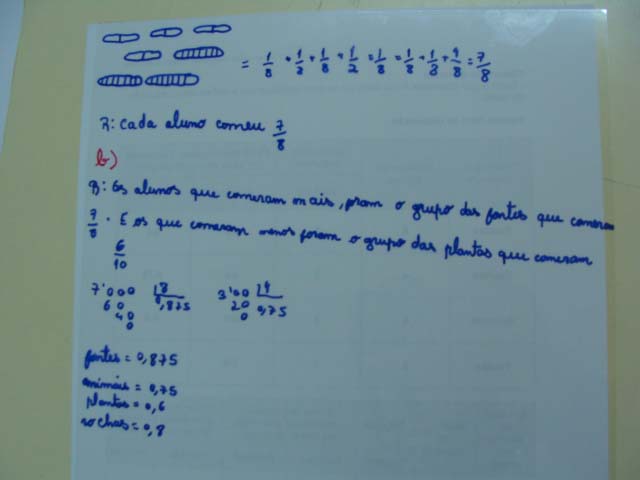 = 1/8 + 1/2 + 1/8 + 1/2 = 1/8 = 1/8 + 1/8 + 4/8 = 7/8
R: Cada aluno comeu 7/8
b)
R: Os alunos que comeram mais, foram o grupo das fontes que comeram
7/8. E os que comeram menos foram o grupo das plantas que comeram
6/10
7'000 |8 3'00 |4
60 0,875 20 0,75
40 0
0
fontes = 0,875
animais = 0,75
plantas = 0,6
rochas = 0,8